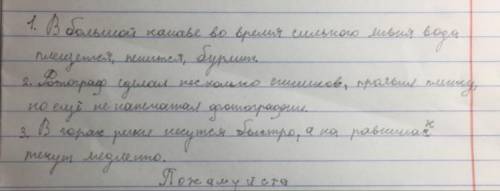 1. В большой канаве во время сильного ливня вода
плещется, пенится, бурлит.
2. Фотограф сделал несколько снимков, проявил пленку,
но ещё не напечатал фотографии.
3. В горах реки несутся быстро, а на равнинах
текут медленно.
Пожалуйста